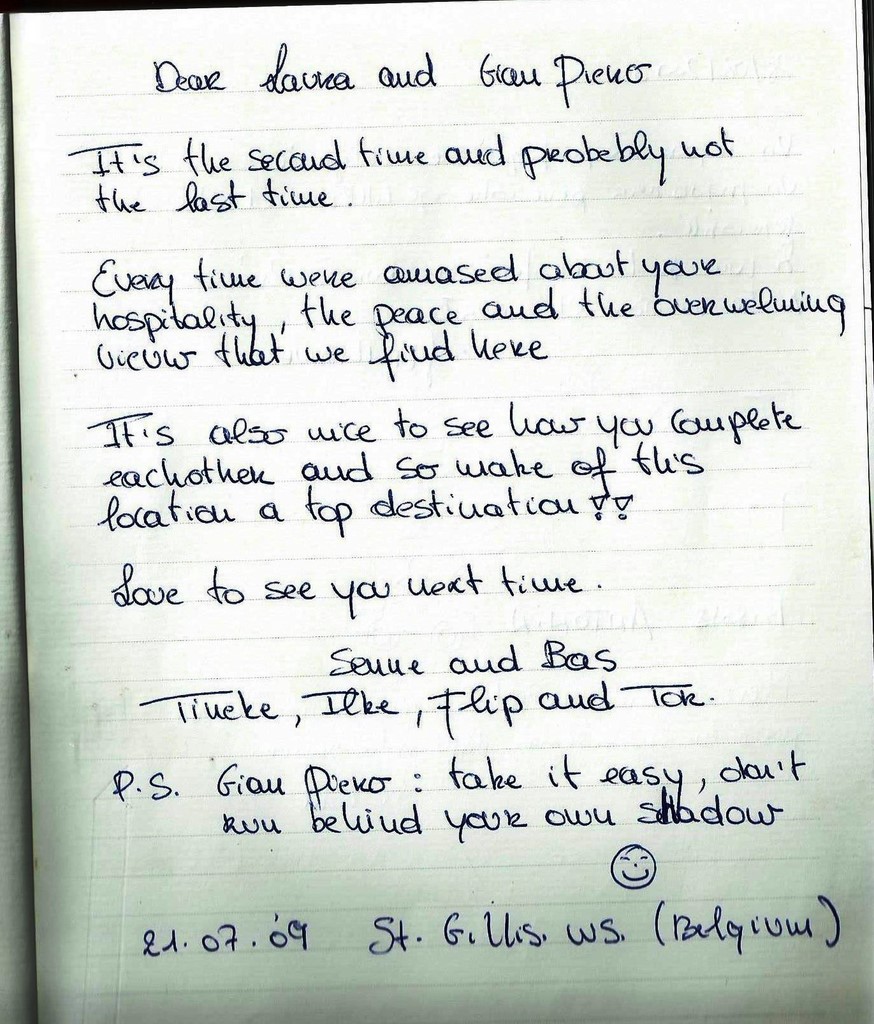 Dear Laura and Gian Piero
It's the second time and probebly not
the last time.
Every time were amased about your
hospitality, the peace and the overwelming
vieuw that we find here
It's also nice to see how you complete
eachother and so make of this
location a top destination !!
Love to see you next time.
Senne and Bas
Tineke, Ilke, Flip and Tor.
P.S. Gian Piero : take it easy, don't
run behind your own shadow
21.07.09 St. Gillis. WS. (Belgium)